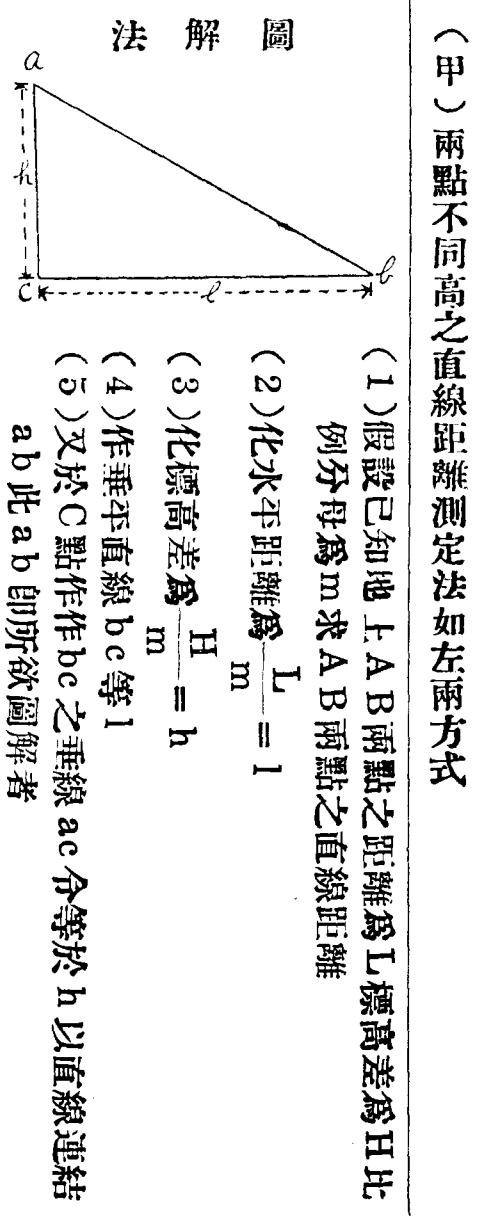 （甲）兩點不同高之直線距離測定法如左兩方式
圖解法
a
h
C
l
b
（1）假設已知地上AB兩點之距離爲L標高差爲H比
例分母爲m求AB兩點之直線距離
（2）化水平距離爲L/m=l
（3）化標高差爲H/m=h
（4）作垂平直線bc等l
（5）又於C點作作bc之垂線ac令等於h以直線連結
ab此ab卽所欲圖解者